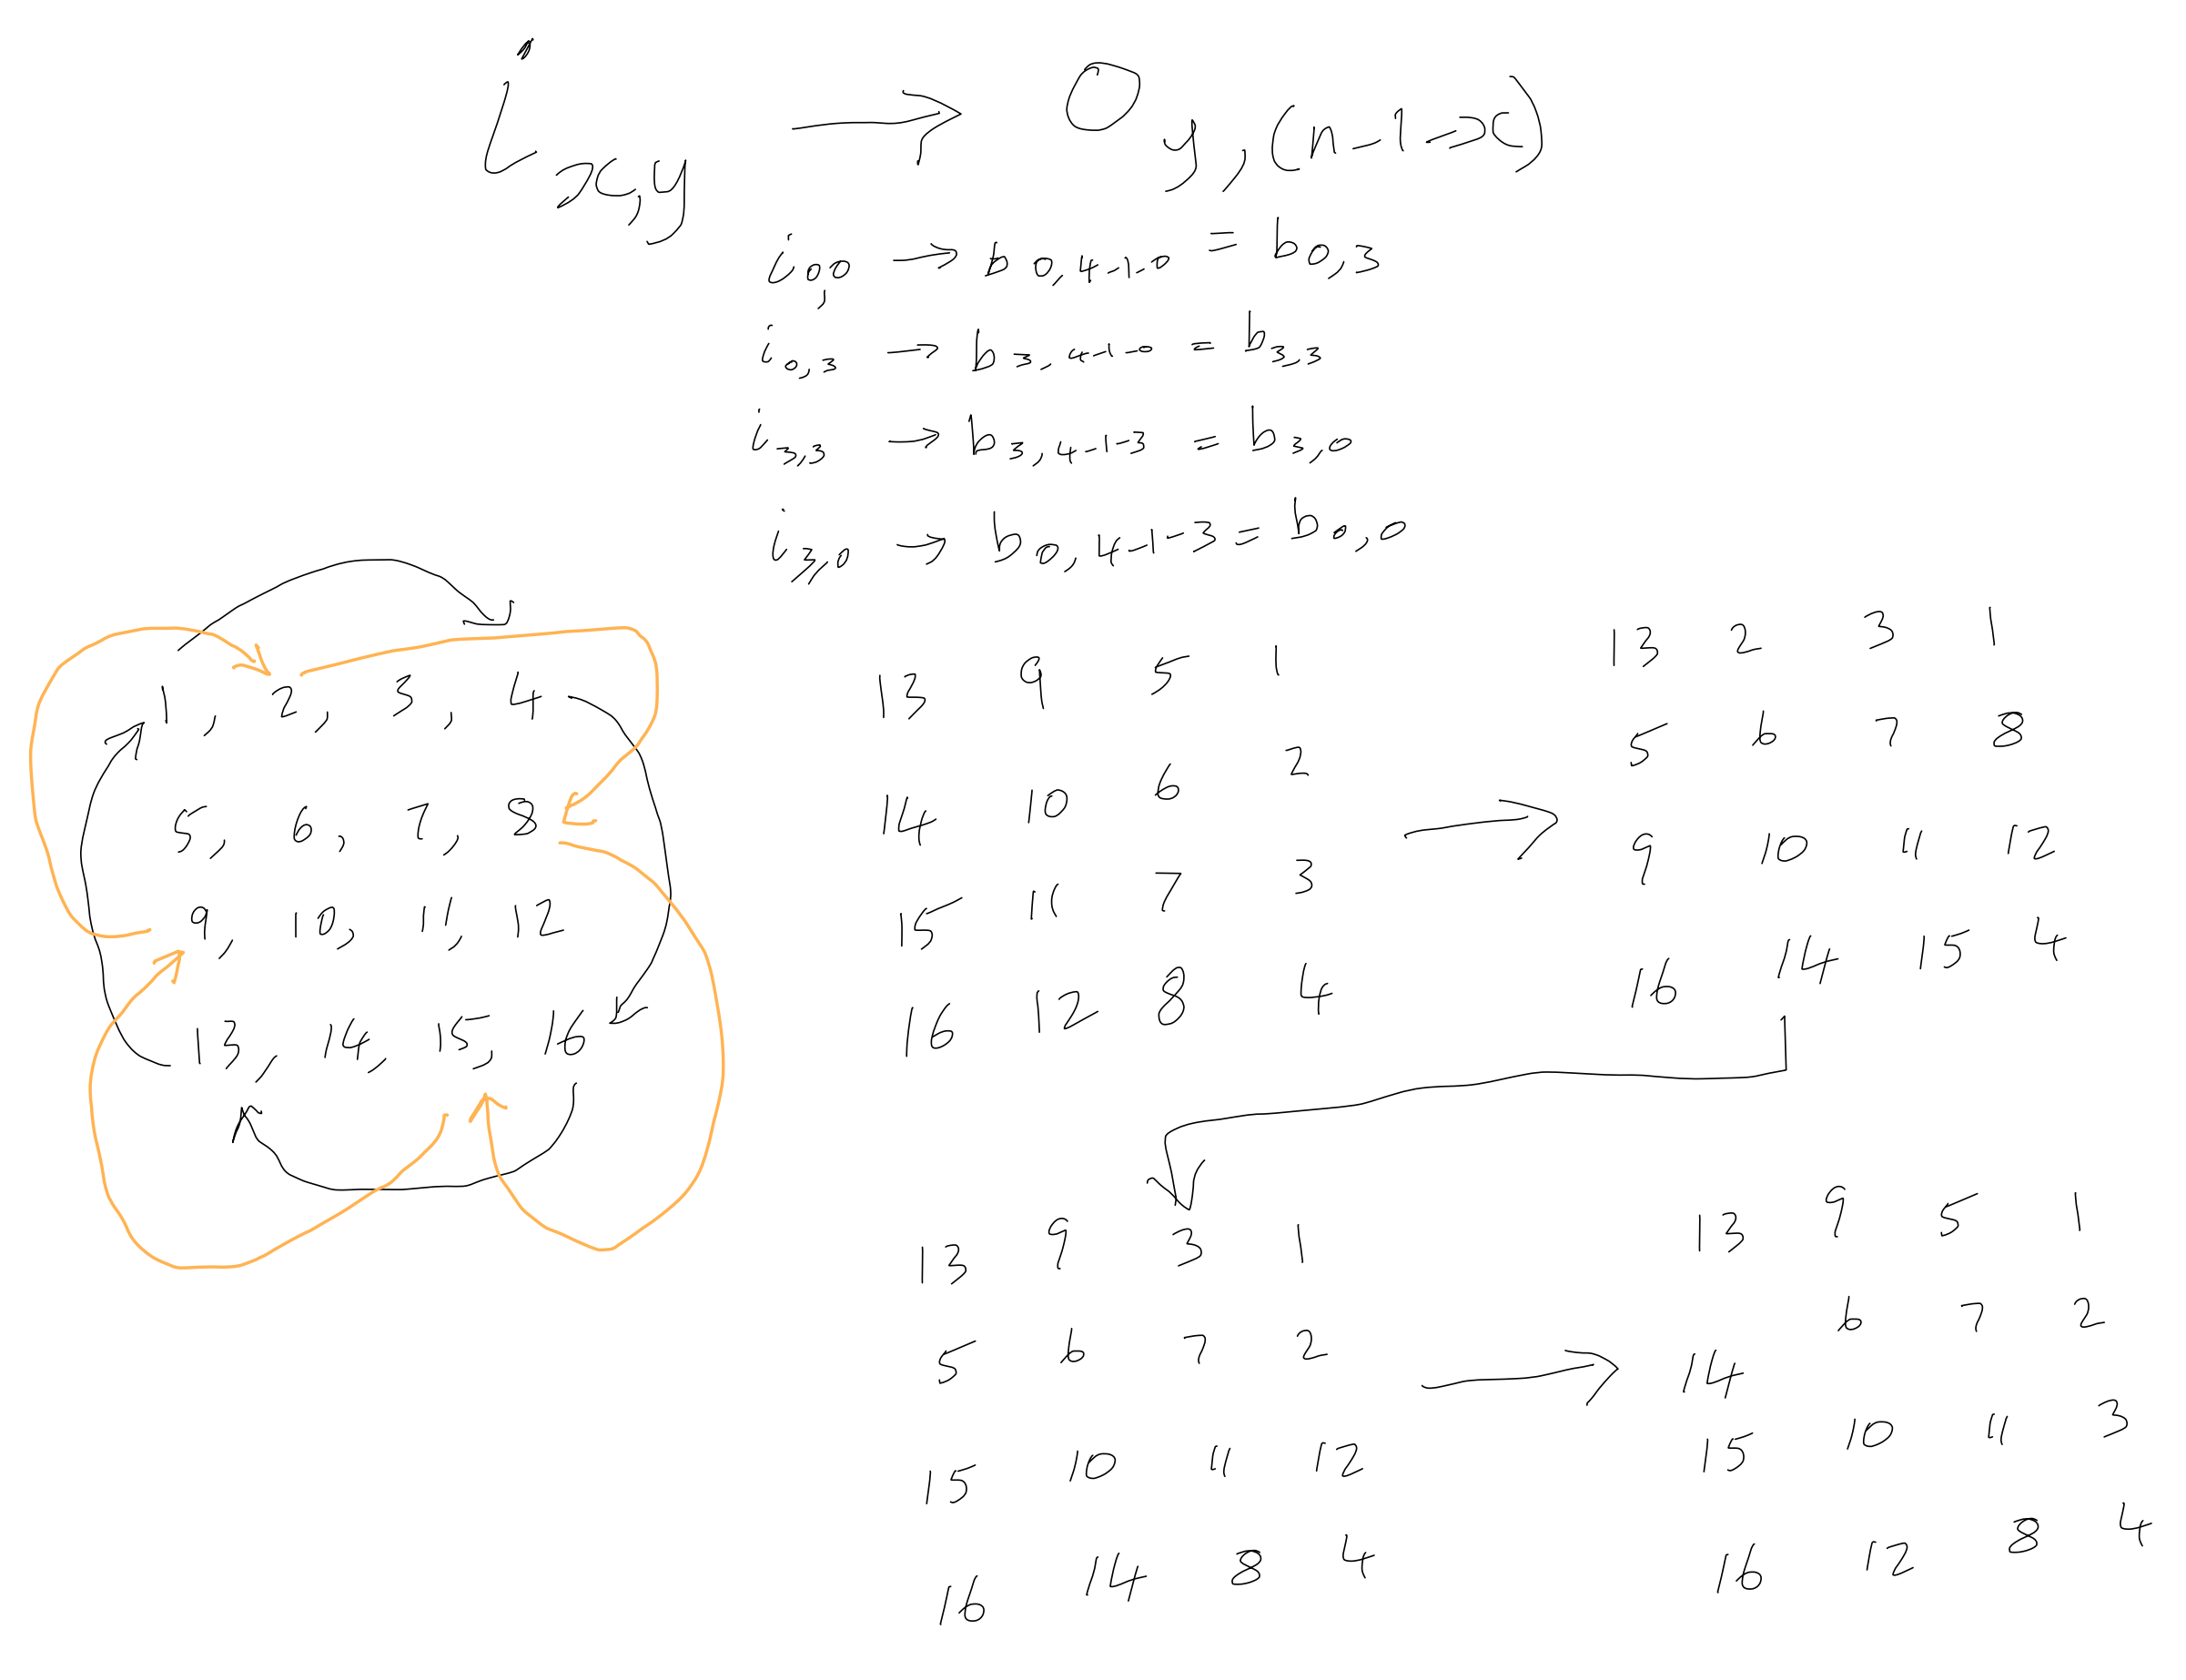 i x,y → O y,(n-1-x)
i 0,0 → b 0,4-1-0 = b 0,3
i 0,3 → b 3,4-1-0 = b 3,3
i 3,3 → b 3,4-1-3 = b 3,0
i 3,0 → b 0,4-1-3 = b 0,0
1, 2, 3, 4
5, 6, 7, 8
9, 10, 11, 12
13, 14, 15, 16
13 9 5 1
14 10 6 2
15 11 7 3
16 12 8 4
→
13 2 3 1
5 6 7 8
9 10 11 12
16 14 15 4
13 9 3 1
5 6 7 2
15 10 11 12
16 14 8 4
→
13 9 5 1
14 6 7 2
15 10 11 3
16 12 8 4